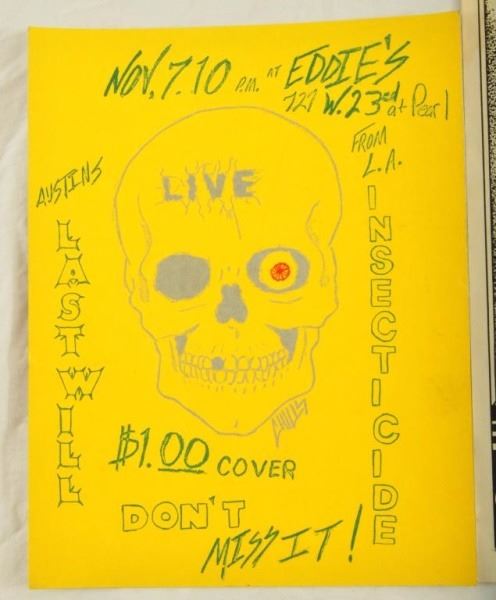 NOV, 7.10 P.M. AT EDDIE'S
727 W. 23rd at Pearl
AUSTINS
LAST WILL
FROM
L.A.
INSECTICIDE
LIVE
$1.00 COVER
DON'T
MISS IT!